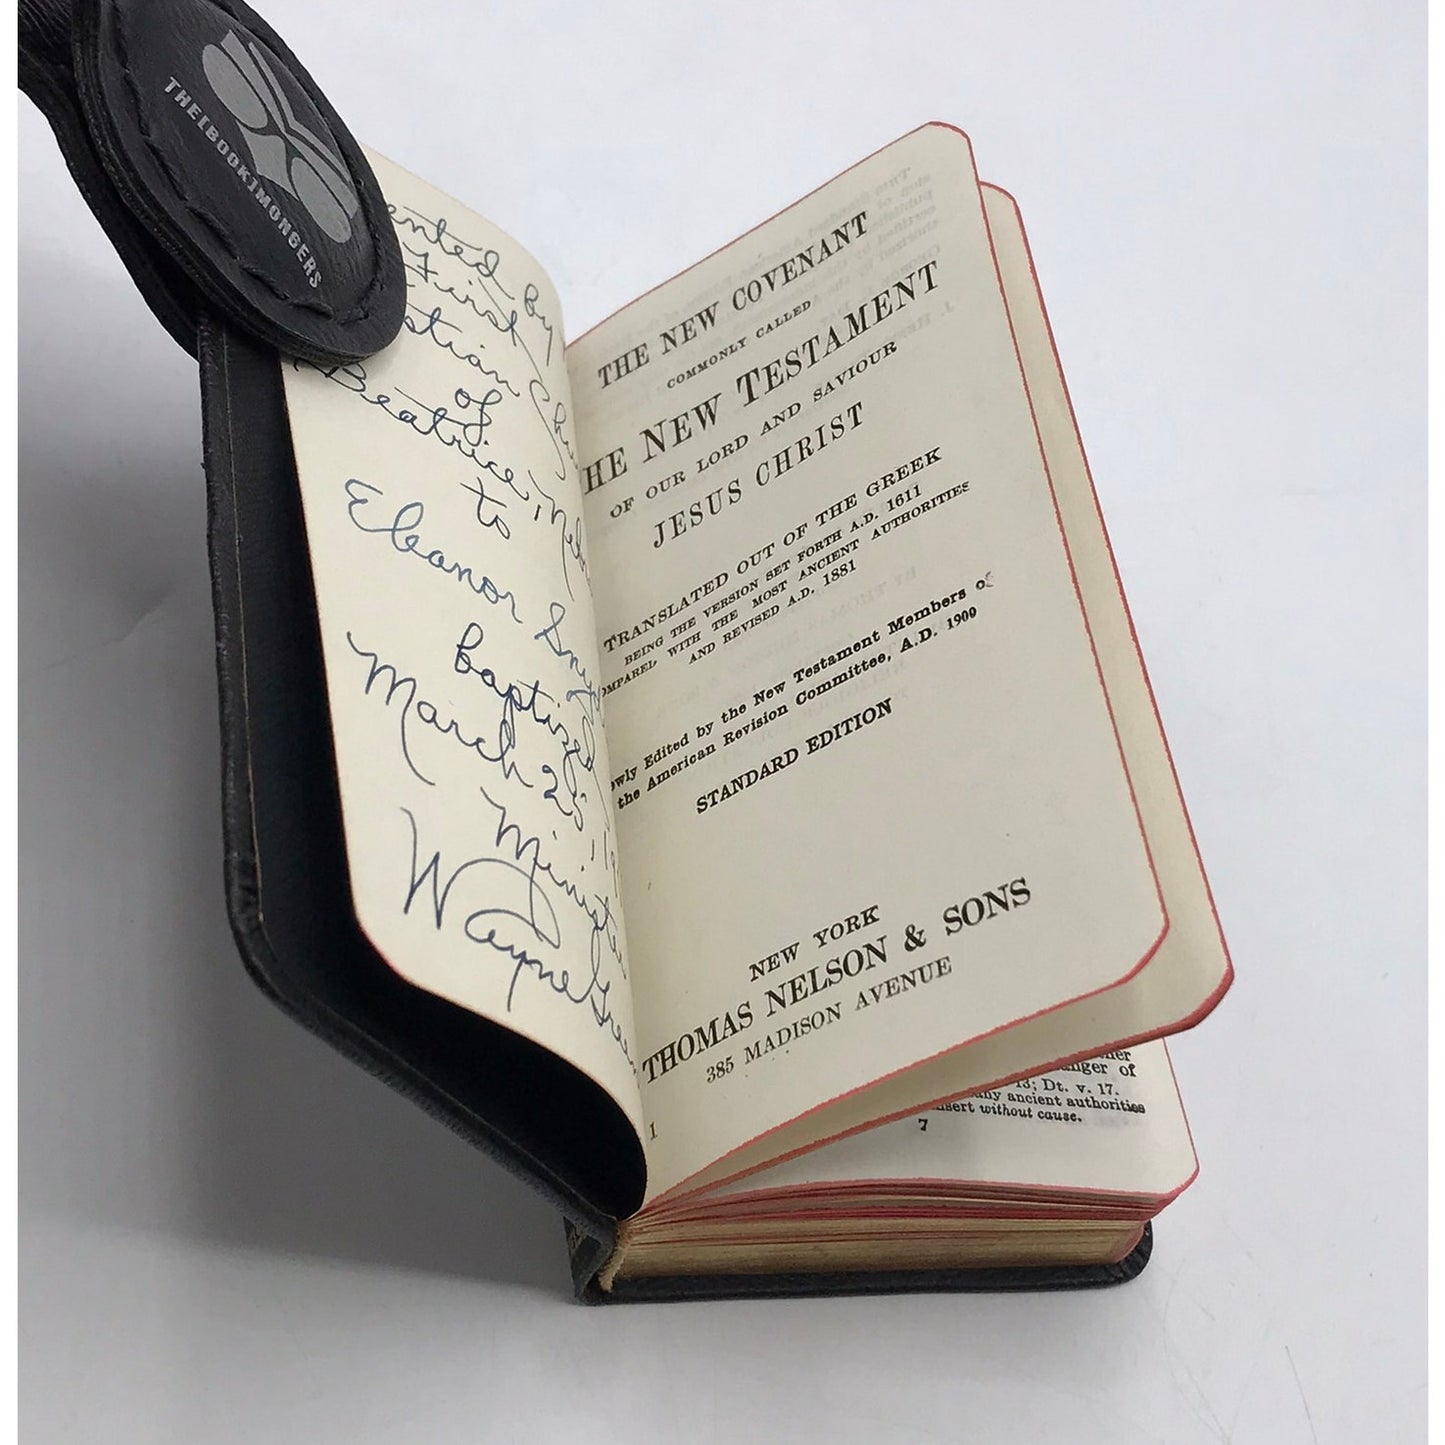 THE[BOOK]MONGERS
ented by
First
stian Chu
of
Beatrice, Neb
to
Eleanor Sny
baptized
March 25, 
Minister
Wayne Green
THE NEW COVENANT
COMMONLY CALLED
HE NEW TESTAMENT
OF OUR LORD AND SAVIOUR
JESUS CHRIST
TRANSLATED OUT OF THE GREEK
BEING THE VERSION SET FORTH A.D. 1611
OMPARED WITH THE MOST ANCIENT AUTHORITIES
AND REVISED A.D. 1881
ewly Edited by the New Testament Members of
the American Revision Committee, A.D. 1900
STANDARD EDITION
NEW YORK
THOMAS NELSON & SONS
385 MADISON AVENUE
1
her
nger of
13; Dt. v. 17.
any ancient authorities
insert without cause.
7